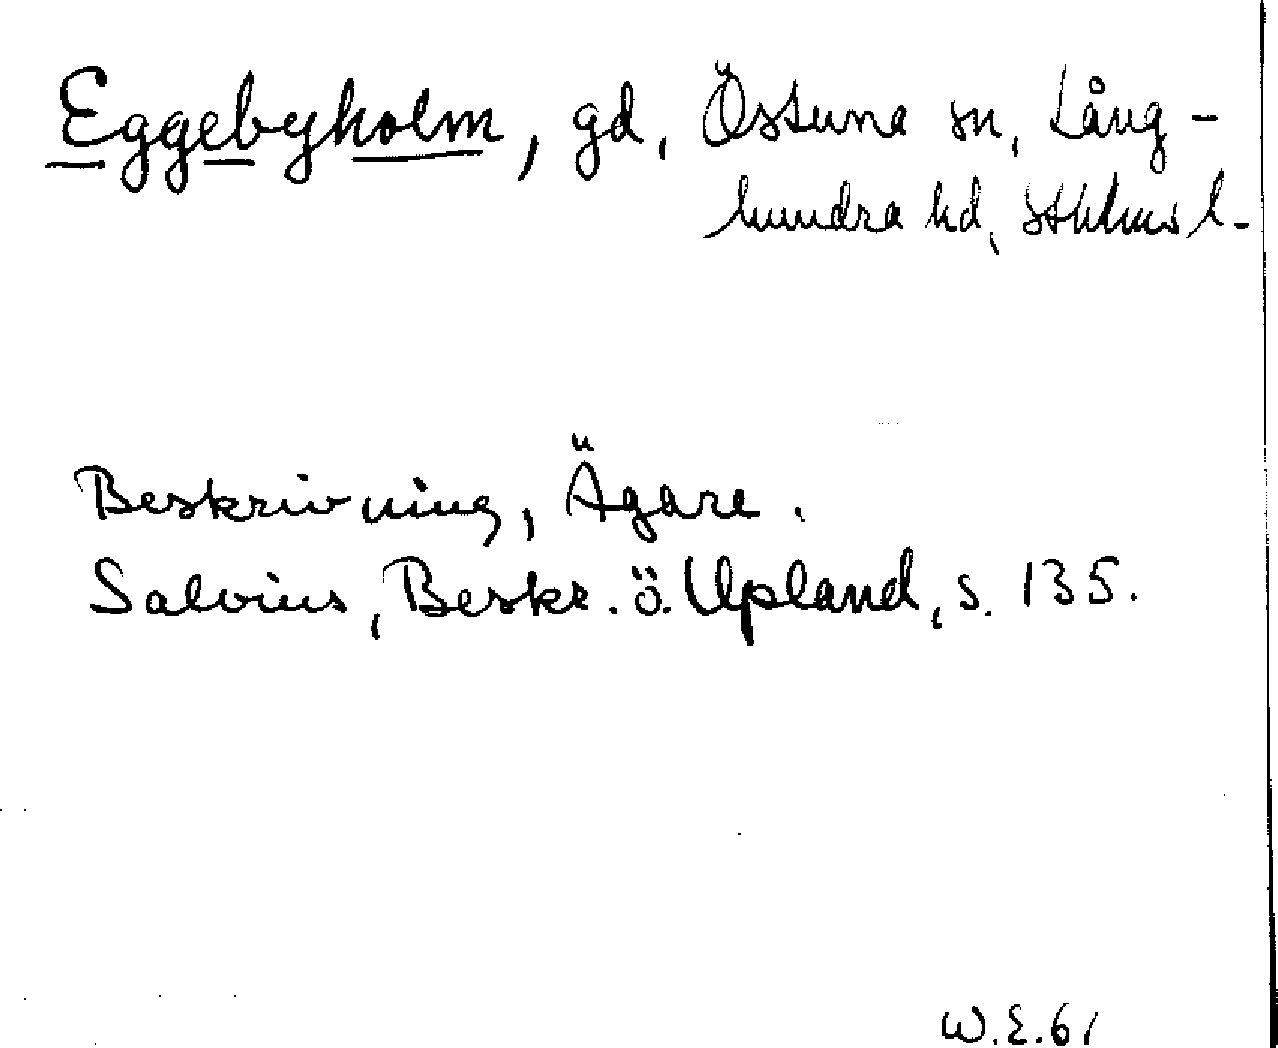 Eggebyholm, gd, Östuna sn, Lång-
hundra hd, Sthlms l.
Beskrivning, Ägare.
Salvius, Beskr. ö. Upland, s. 135.
W.E.61